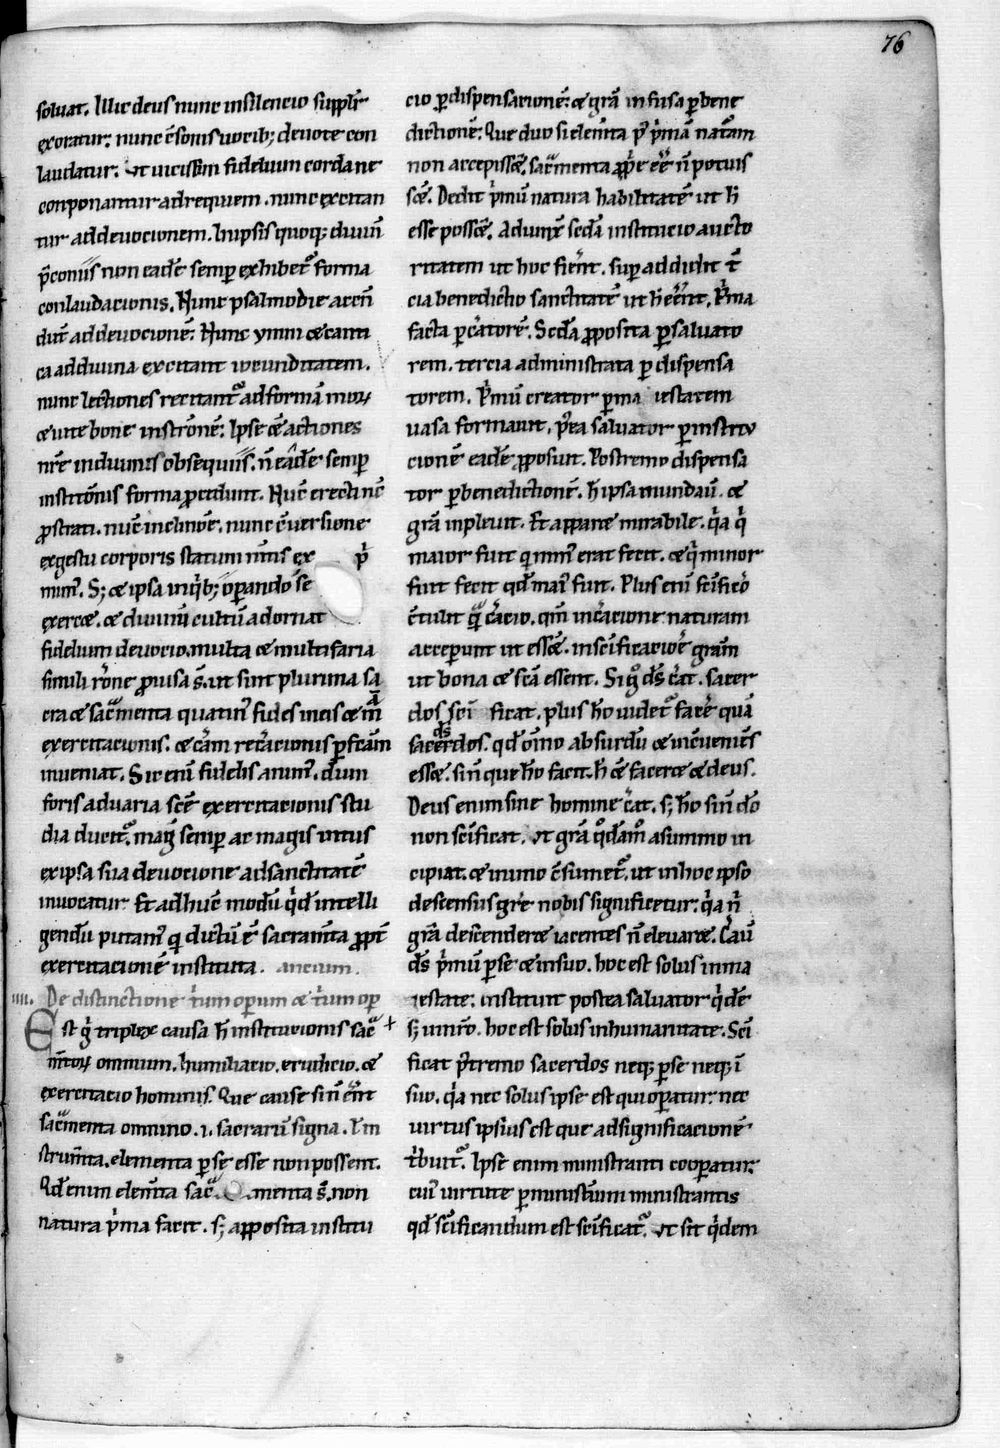 76
soluat. Illic deus nunc insilencio supplr̄
exoratur. nunc c̄ sonis uocib; deuote con
laudatur. Vt uicissim fidelium corda ne
conponantur ad requiem. nunc excitan
tur ad deuocionem. In ipsis quoq; diuin̄
p̄coniis non eadē semp exhibet᷑ forma
conlaudacionis. Nunc psalmodie accn̄
dūt ad deuocionē. Nunc ymni & canti
ca ad diuina excitant iocunditatem.
nunc lectiones recitant᷑ ad formā moꝝ
& uite bone instr̄onē. Ipse & actiones
nr̄e in diuinis obsequiis. n̄ eadē semp
institōnis forma procedunt. Nūc erecti nc̄
prostrati. nūc inclinōe. nunc c̄uersione
ex gestu corporis statum mn̄tis ex p̊
mim᷒. S; & ipsa uirq̇b; operando se
exerc&. & diuinū cultū adornat
fidelium deuocio. multa & multifaria
simili rōne prouisa s̄. ut sint plurima sa
cra & sac̄menta quatin᷒ fides in eis & mā
exercitacionis. & cām rec̄acionis p̱fc̄am
inueniat. Sic enī fidelis anim᷒. dum
foris ad uaria sc̄e exercitacionis stu
dia ducit᷑. mag̃ semp ac magis intus
ex ipsa sua deuocione ad sanctitatē
inuocatur Et adhuc modū q̇d intelli
gendū putam᷒ q dictū ē sacram̄ta propt̄
exercitacionē instituta. ancium.
IIII. De distinctione t̓um operum & t̓um oper
Est g̊ triplex causa h̄ institucionis sac̄ +
m̄toꝝ omnium. humiliacio. erudicio. &
exercitacio hominis. Que cause sin̄ eēnt
sac̄menta omnino .i. sacrarū signa. Em̄
strum̄ta. elementa p̱ se esse non possent.
Qd̄ enim elem̄ta sac̄ menta s̄. non
natura p̓ma facit. s; apposita institu
cio p̱ dispensacionē: & gr̄a infusa p̱ bene
dictionē. Que duo si elem̄ta p᷒ p̓mā natām
non accepiss&̄. sac̄menta prop̓e eē n̄ potuis
sc̄. Dedit p̓mū natura habilitatē ut h̄
esse poss&̄. Adiunx̄ sed̄a institucio aucto
ritatem ut hoc fient. sup addidit t̄
cia benedictio sanctitatē ut h̄ eēnt. P̓ma
facta p̱ c̄atorē. Sed̄a proposita p̱ saluato
rem. tercia administrata p̱ dispensa
torem. P̓mū creator p̱ ma iestatem
uasa formauit. p᷒ea saluator p̱ institu
cionē eadē proposuit. Postremo dispensa
tor p̱ benedictionē. h̄ ipsa mundau̅. &
gr̄a impleuit. Et apparz mirabile. q̇a q̇
maior fuit q mim᷒ erat fecit. & q̇ minor
fuit fecit qd̄ mai᷒ fuit. Plus enī sc̄ificō
c̄tulit q̄ c̄acio. qm̄ in c̄acione naturam
acceperunt ut ess&̄. in sc̄ificacioē gr̄am
ut bona & sc̄a essent. Sigͦ d̄s c̄at. sacer
dos sci ficat. plus hō uidet᷑ facē quā
d̄s
sacerdos. qd̄ oīno absurdū & inc̄ueniēs
ess&̄. sin̄ que hō facit. h̄ & facere & deus.
Deus enim sine homine c̄at. s; hō sin̄ dō
non sc̄ificat. Vt gr̄a q̊d̄am᷒ a summo in
cipiat. & in imo c̄sumet᷑. ut in hoc ipso
descensus gr̄e nobis significetur. q̇a n̄
gr̄a descender& iacentes n̄ eleuar&. C̄au̅
d̄s p̓mū p̱ se & in suo. hoc est solus in ma
iestate: instituit postea saluator q̇dē
s; in nr̄o. hoc est solus in humanitate. Sc̄i
ficat p᷒tremo sacerdos neq; p̱ se neq; ī
suo. q̇a nec solus ipse est qui operatur. nec
uirtus ipsius est que ad significacionē
t̓buit᷑. Ipse enim ministranti cooperatur.
cui᷒ uirtute p̱ ministūm ministrantis
qd̄ sc̄ificandum est sc̄ificat᷑. Vt sit q̇dem